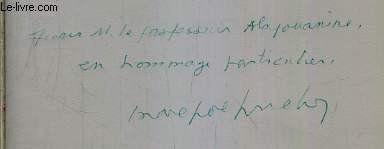 Le-livre.com
Pour M. le professeur Alajouanine,
en hommage particulier,